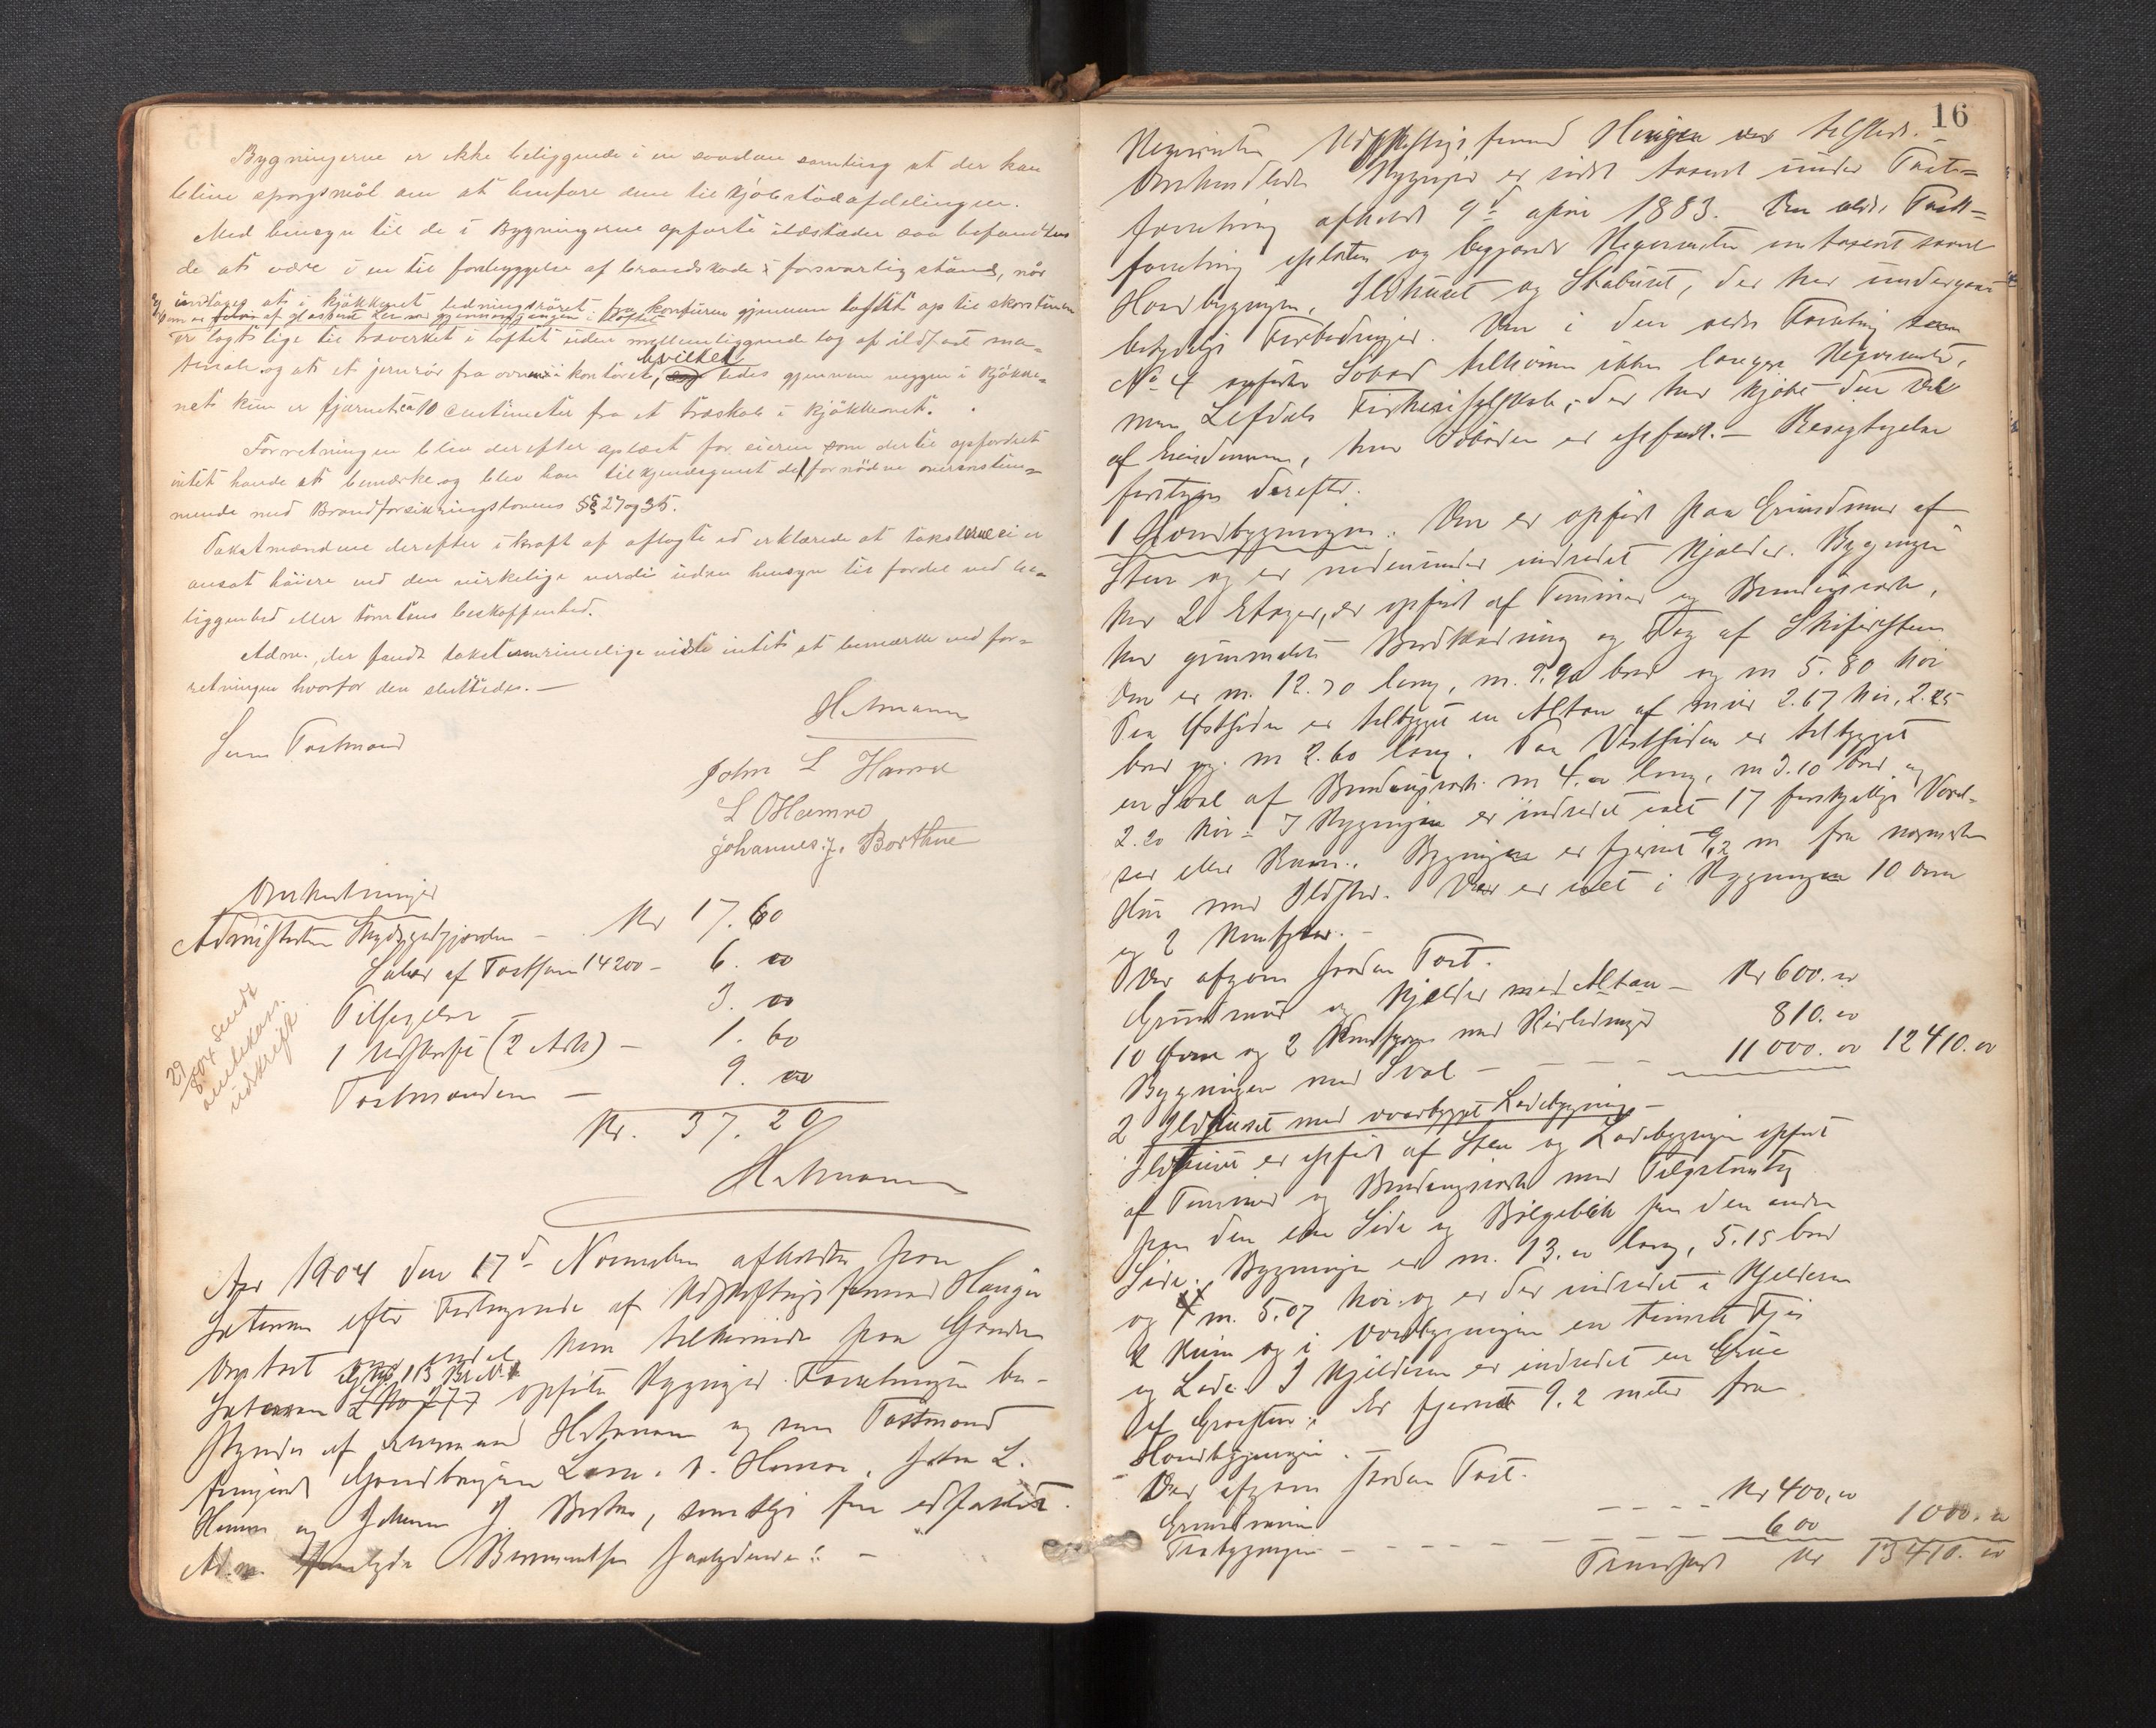 Bygningerne er ikke beliggende i en saadan samling at der kan
blive spørgsmål om at henføre dem til Kjøbstadafdelingen.
Med hensyn til de i Bygningerne opførte ildsteder saa befandtes
de at være i en til forebyggelse af brandskade forsvarlig stand, når
undtages at i kjøkkenet ledningsrøret fra komfuren gjennem loftet op til skorstenen
er lagt lige til træverket i loftet uden mellemliggende lag af ildfast ma-
teriale og at et jernrør fra ovnen i kontoret, hvilket ledes gjennem væggen i Kjøkke-
net kun er fjernet ca 10 centimeter fra et træskab i kjøkkenet.
Forretningen blev derefter oplæst for eieren som dertil opfordret
intet havde at bemærke og blev han tilkjendegivet det fornødne overensstem-
mende med Brandforsikringslovens §§ 27 og 35.
Takstmændene derefter i kraft af aflagte ed erklærede at taksterne ei er
ansat høiere end den virkelige verdi uden hensyn til fordel ved be-
liggenhed eller tomtens beskaffenhed.
Adm., der fandt taksterne rimelige vidste intet at bemærke ved for-
retningen hvorfor den sluttedes. —
Som Takstmænd
John L Hamre
L O Hamre
Johannes J. Borthne
Omkostninger
Administrator Skydsgodtgjørelse — Kr 17.60
Salær af Takstsum 14200 — 6.00
Tilsigelse — 3.00
1 Udskrift (2 Ark) — 1.60
Takstmændene — 9.00
Kr. 37.20
29/8 04 sendt
udskrift
Aar 1904 den 17de November afholdtes paa
efter Forlangende af Udskiftningsformand Haugen
Omtaxt ham tilhørende paa Gaarden
opførte Bygninger. Forretningen be-
styredes af Lensmand og som Takstmænd
fungerede Gaardbrugerne Lars O. Hamre, John L.
Hamre og Johannes J. Borthne, som før edfæstet.
Adm. fremlagde saalydende: —
16
Rekvirenten Udskiftningsformand Haugen var tilstede. —
Omhandlede Bygninger er sidst taxeret under Taxt-
forretning afholdt 9de april 1883. Den ældre Taxt-
forretning oplæstes og begjærede Rekvirenten omtaxeret saavel
Hovedbygningen, Ildhuset og Stabuset, der har undergaaet
betydelige Forbedringer. Den i den ældre Forretning under
No 4 anførte Søbod tilhører ikke længere Rekvirenten,
men Lefdals Fiskeriselskab, der har kjøbt den Del
af Eiendommen, hvor Søboden er opført. — Besigtigelse
foretages derefter.
1 Hovedbygningen. Den er opført paa Grundmur af
Sten og er nedenunder indredet Kjelder. Bygningen
har 2 Etager, er opført af Tømmer og Bindingsverk,
har gammelt Bordklædning og Tag af Skifersten
Den er m. 12.70 lang, m. 9.90 bred og m 5.80 høi
Paa Østsiden er tilbygget en Altan af mur 2.67 høi, 2.25
bred og m 2.60 lang. Paa Vestsiden er tilbygget
en Sval af Bindingsverk m 4.00 lang, m 3.10 bred og
2.20 høi. I Bygningen er indredet ialt 17 forskjellige Værel-
ser eller Rum. Bygningen er fjernet 9,2 m fra nærmeste
Hus med Ildsted. Der er ialt i Bygningen 10 Ovne
og 2 Komfyrer. —
Der afgaves saadan Taxt.
Grundmur og Kjelder med Altan — Kr 600.00
10 Ovne og 2 Komfyrer med Rørledninger 810.00
Bygningen med Sval — — — — 11000.00 12410.00
2 Ildhuset med overbygget Ladebygning —
Ildhuset er opført af Sten og Ladebygningen opført
af Tømmer og Bindingsverk med Teglstenstag
paa den ene Side og Bølgeblik paa den anden
Side. Bygningen er m. 13.00 lang, 5.15 bred
og m. 5.07 høi og er der indredet i Kjelderen
2 Rum og i Overbygningen en tømret Fjøs
og Lade. I Kjelderen er indredet en Grue
af Graasten. Er fjernet 9.2 meter fra
Hovedbygningen. —
Der afgaves saadan Taxt.
Grundmuren — — — — Kr 400,00
Træbygningen — — — — — 600 1000.00
Transport Kr 13410.00